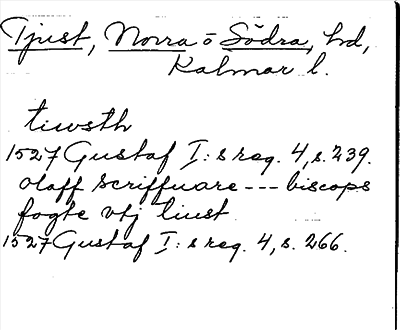 Tjust, Norra o Södra, hd,
Kalmar l.
tiwsth
1527 Gustaf I:s reg. 4, s. 239.
olaff scriffuare --- biscops
fogte vtj tiust
1527 Gustaf I:s reg. 4, s. 266.